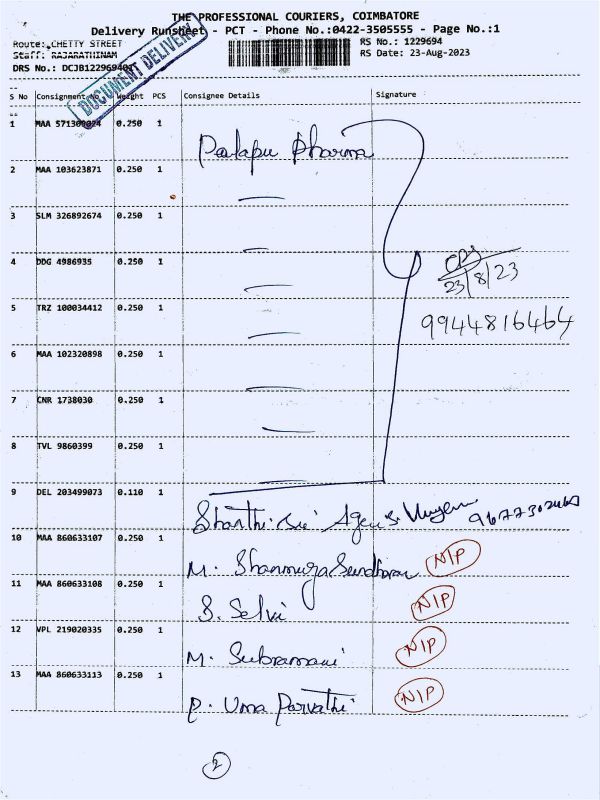 THE PROFESSIONAL COURIERS, COIMBATORE
Delivery Runsheet - PCT - Phone No.:0422-3505555 - Page No.:1
Route: CHETTY STREET RS No.: 1229694
Staff: RAJARATHINAM RS Date: 23-Aug-2023
DRS No.: DCJB1229694
DOCUMENT DELIVERY
S No Consignment No Weight PCS Consignee Details Signature
1 MAA 0.250 1
Pharma
2 MAA 103623871 0.250 1
3 SLM 326892674 0.250 1
4 DDG 4986935 0.250 1
23/8/23
5 TRZ 100034412 0.250 1
9944816464
6 MAA 102320898 0.250 1
7 CNR 1738030 0.250 1
8 TVL 9860399 0.250 1
9 DEL 203499073 0.110 1
10 MAA 860633107 0.250 1
M. Shanmuga Sundharam NIP
11 MAA 860633108 0.250 1
S. Selvi NIP
12 VPL 219020335 0.250 1
M. Subramani NIP
13 MAA 860633113 0.250 1
P. Uma Parvathi NIP
2